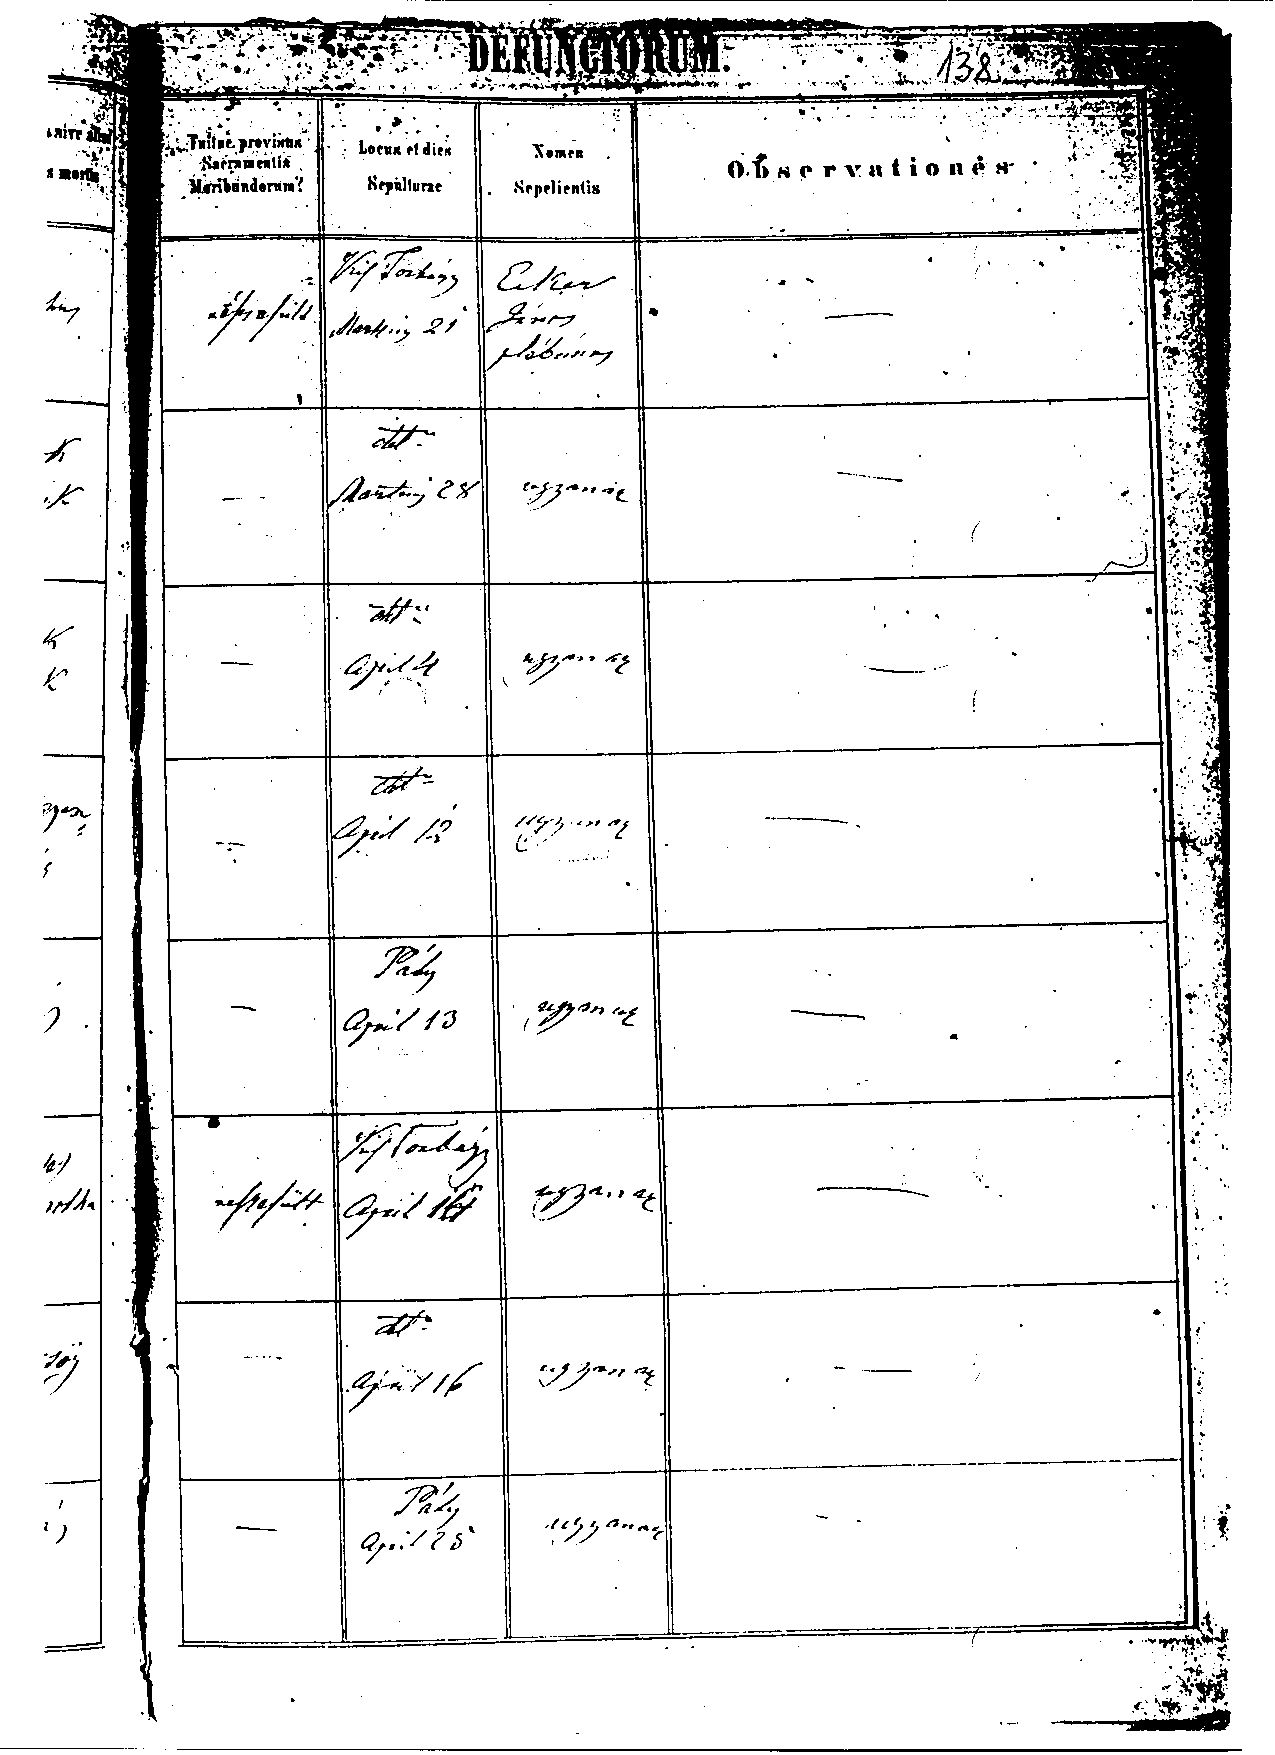 DEFUNCTORUM.
138
Fuitne provisus
Sacramentis
Moribundorum?
Locus et dies
Sepulturae
Nomen
Sepelientis
Observationes
Kis Torbágy
Martius 21
Ecker
János
plébános
—
—
dtt
Martius 28
ugyanaz
—
—
dtt
April 4
ugyanaz
—
—
dtt
April 12
ugyanaz
—
—
Páty
April 13
ugyanaz
—
Kis Torbágy
April
ugyanaz
—
—
dtt
April 16
ugyanaz
—
—
Páty
April 25
ugyanaz